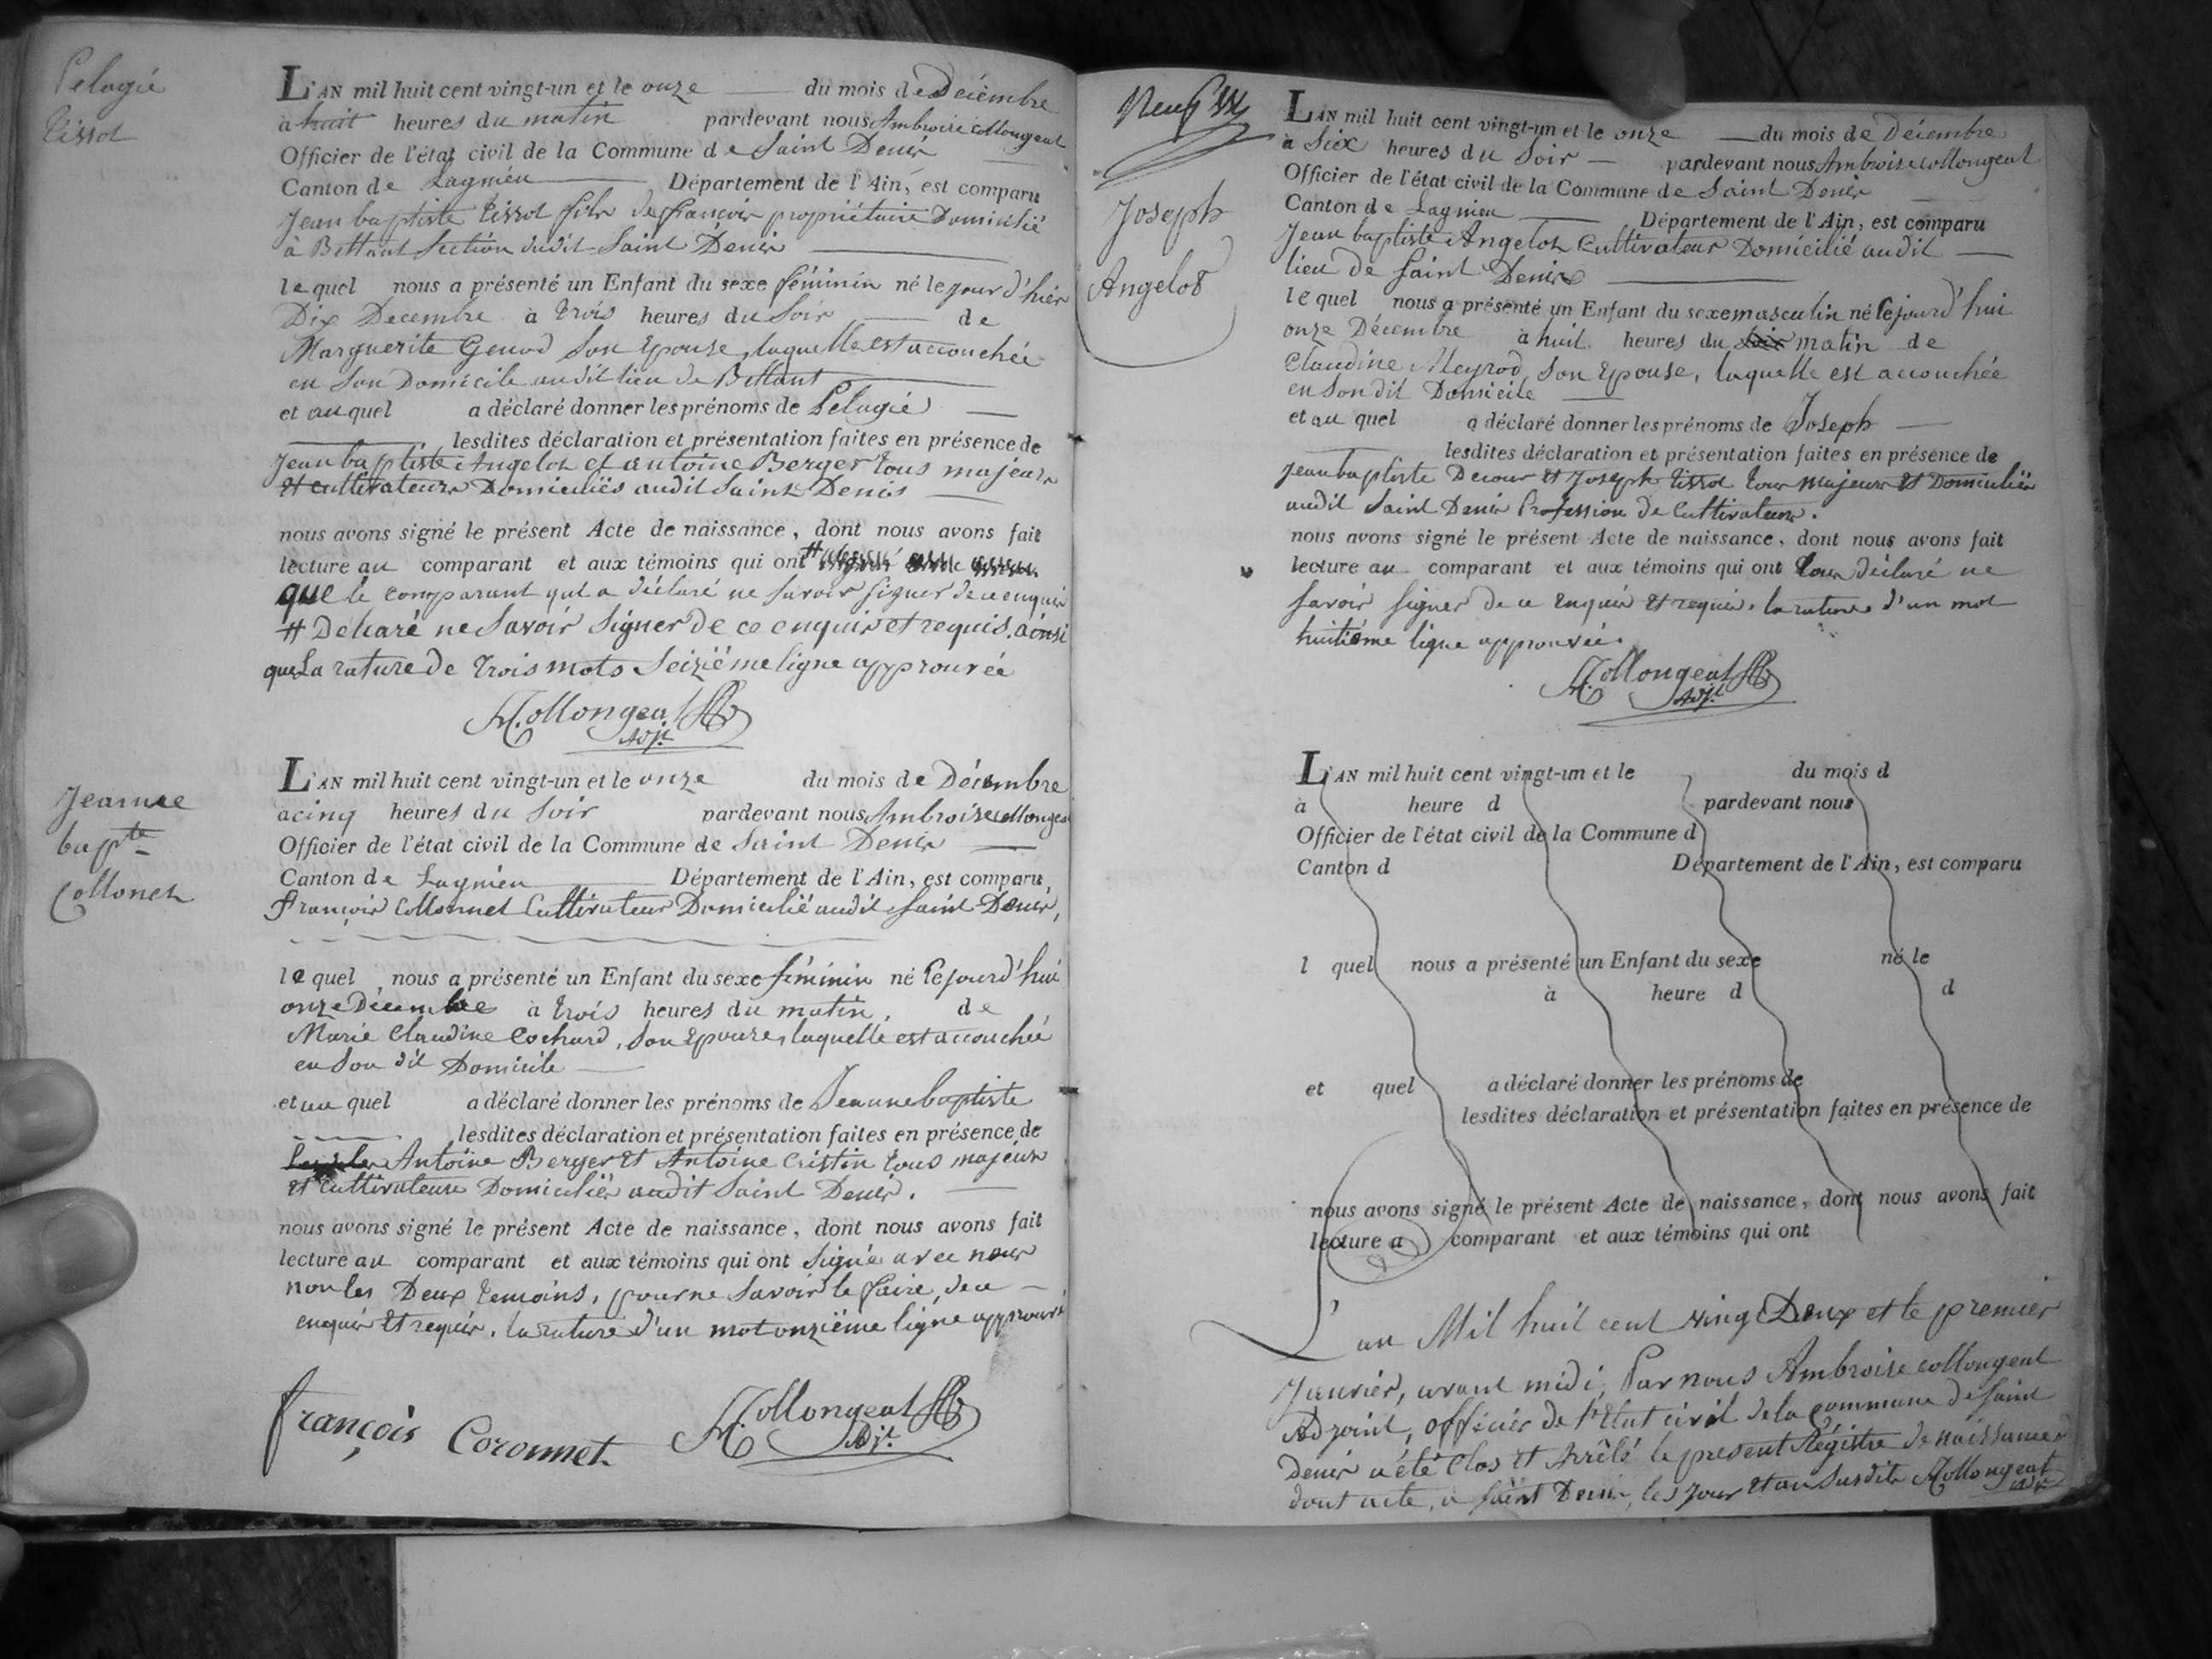 Pelagie
Tissot
L'AN mil huit cent vingt-un et le onze du mois de Décembre
à huit heures du matin pardevant nous Ambroise Collongeat
Officier de l'état civil de la Commune de Saint Denis
Canton de Lagnieu Département de l'Ain, est comparu
Jean baptiste Tissot fils de françois propriétaire Domicilié
à Bettant Section dudit Saint Denis
lequel nous a présenté un Enfant du sexe féminin né le jour d'hier
Dix Decembre à trois heures du Soir de
Marguerite Genod Son Epouse, laquelle est accouchée
en Son Domicile audit lieu de Bettant
et au quel a déclaré donner les prénoms de Pelagie
lesdites déclaration et présentation faites en présence de
Jean baptiste Angelot et antoine Berger tous majeurs
et cultivateurs Domiciliés audit Saint Denis
nous avons signé le présent Acte de naissance, dont nous avons fait
lecture au comparant et aux témoins qui ont #
que le comparant qui a déclaré ne savoir signer de ce enquis
# Déclaré ne Savoir Signer de ce enquis et requis. ainsi
que La rature de trois mots Seizième ligne approuvée
A. Collongeat
Adj.t
Jeanne
bap.te
Collonet
L'AN mil huit cent vingt-un et le onze du mois de Décembre
à cinq heures du Soir pardevant nous Ambroise Collongeat
Officier de l'état civil de la Commune de Saint Denis
Canton de Lagnieu Département de l'Ain, est comparu,
françois Collonnet Cultivateur Domicilié audit Saint Denis,
lequel nous a présenté un Enfant du sexe féminin né cejourd'hui
onze Décembre à trois heures du matin, de
Marie Claudine Cochard, Son Epouse, laquelle est accouchée
en Son dit Domicile
et au quel a déclaré donner les prénoms de Jeanne baptiste
lesdites déclaration et présentation faites en présence de
Antoine Berger et Antoine Cristin tous majeurs
et cultivateurs Domiciliés audit Saint Denis.
nous avons signé le présent Acte de naissance, dont nous avons fait
lecture au comparant et aux témoins qui ont Signé avec nous
non les Deux temoins, pour ne Savoir le faire, de ce
enquis et requis. la rature d'un mot onzième ligne approuvé
françois Coronnet A. Collongeat
Adj.t
Neuf
Joseph
Angelot
L'AN mil huit cent vingt-un et le onze du mois de Décembre
à Six heures du Soir pardevant nous Ambroise Collongeat
Officier de l'état civil de la Commune de Saint Denis
Canton de Lagnieu Département de l'Ain, est comparu
Jean baptiste Angelot Cultivateur Domicilié audit
lieu de Saint Denis
lequel nous a présenté un Enfant du sexe masculin né cejourd'hui
onze Décembre à huit heures du soir matin de
Claudine Meyrod, Son Epouse, laquelle est accouchée
en Son dit Domicile
et au quel a déclaré donner les prénoms de Joseph
lesdites déclaration et présentation faites en présence de
Jean baptiste Decour et Joseph Tissot tous majeurs et Domiciliés
audit Saint Denis Profession de Cultivateurs.
nous avons signé le présent Acte de naissance, dont nous avons fait
lecture au comparant et aux témoins qui ont tous déclaré ne
Savoir Signer de ce Enquis et requis. la rature d'un mot
huitième ligne approuvée.
A. Collongeat
Adj.t
L'AN mil huit cent vingt-un et le du mois d
à heure d pardevant nous
Officier de l'état civil de la Commune d
Canton d Département de l'Ain, est comparu
l quel nous a présenté un Enfant du sexe né le
à heure d d
et quel a déclaré donner les prénoms de
lesdites déclaration et présentation faites en présence de
nous avons signé le présent Acte de naissance, dont nous avons fait
lecture a comparant et aux témoins qui ont
L'an Mil huit cent Vingt Deux et le premier
Janvier, avant midi, Par nous Ambroise Collongeat
Adjoint, officier de l'Etat civil de la commune de Saint
Denis a été Clos et Arrêté le present Régistre de naissances
dont acte, a Saint Denis, les jour et an Susdits A. Collongeat
Adj.t